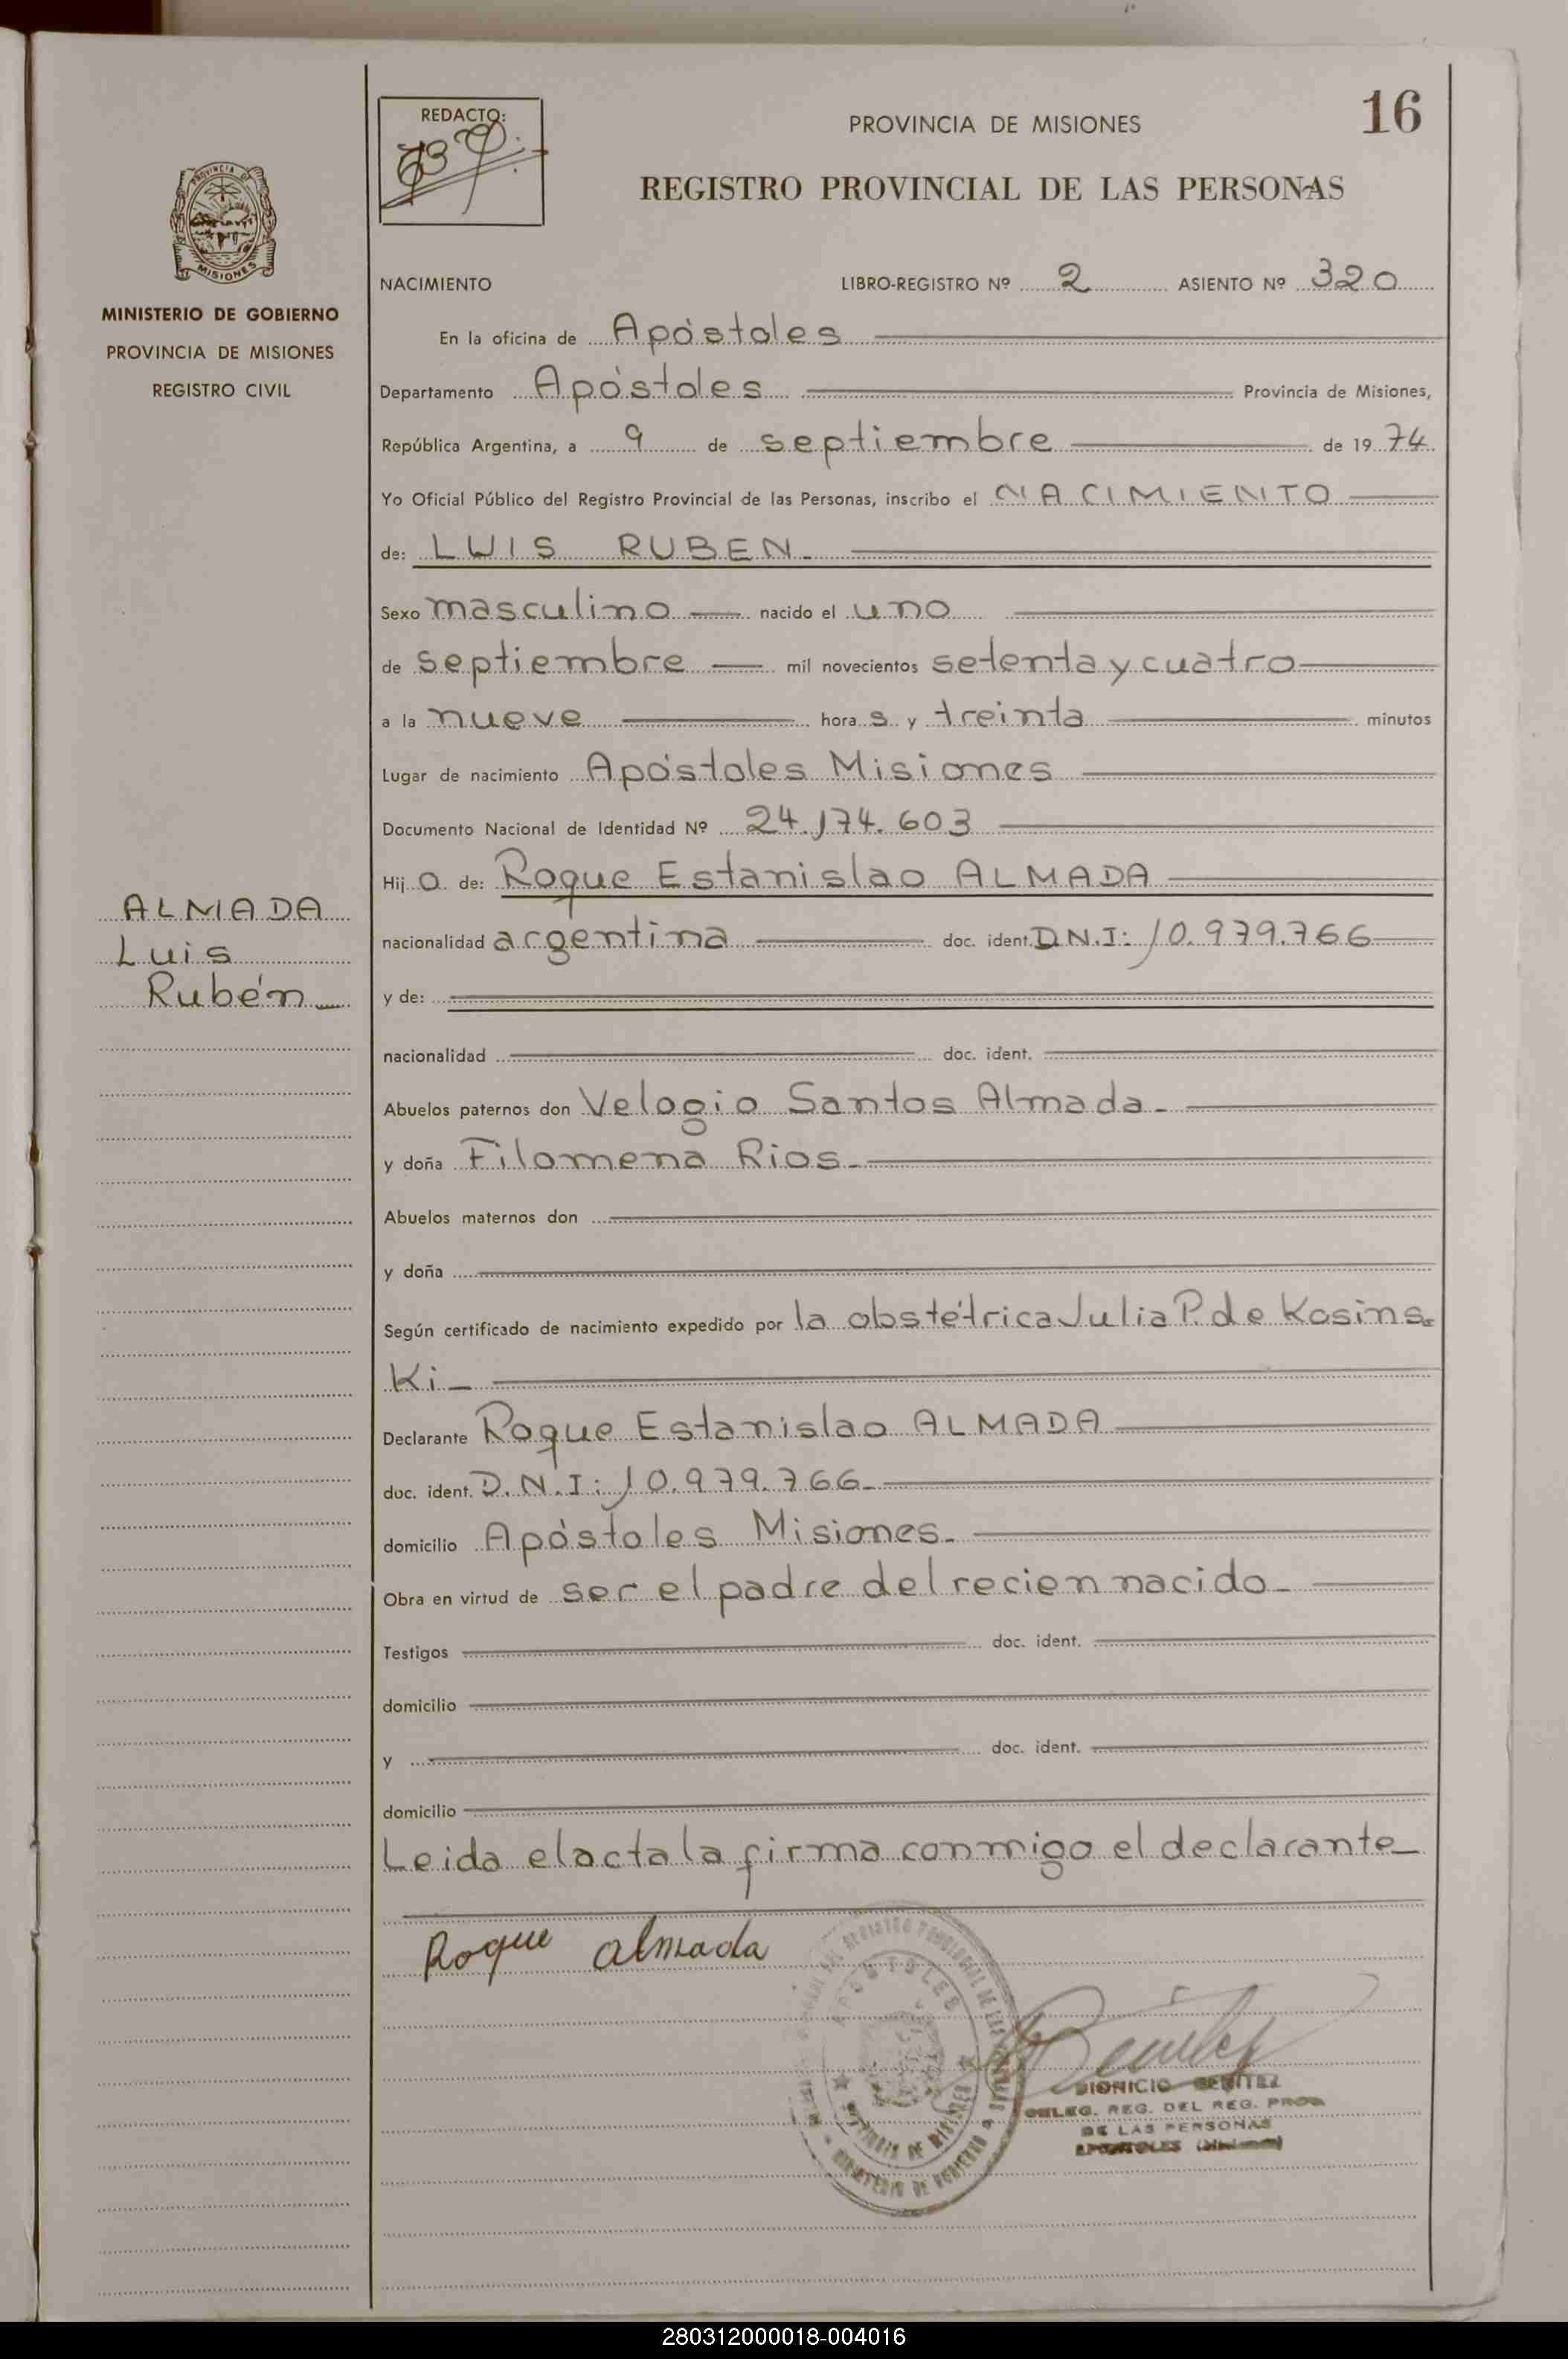 16
REDACTO:
PROVINCIA DE MISIONES
REGISTRO PROVINCIAL DE LAS PERSONAS
PROVINCIA DE
MISIONES
MINISTERIO DE GOBIERNO
PROVINCIA DE MISIONES
REGISTRO CIVIL
NACIMIENTO LIBRO-REGISTRO Nº 2 ASIENTO Nº 320
En la oficina de Apóstoles
Departamento Apóstoles Provincia de Misiones,
República Argentina, a 9 de septiembre de 19 74
Yo Oficial Público del Registro Provincial de las Personas, inscribo el NACIMIENTO
de: LUIS RUBEN
Sexo masculino nacido el uno
de septiembre mil novecientos setenta y cuatro
a la nueve hora s y treinta minutos
Lugar de nacimiento Apóstoles Misiones
Documento Nacional de Identidad Nº 24.174.603
Hij o de: Roque Estanislao ALMADA
ALMADA
Luis
Rubén
nacionalidad argentina doc. ident. D.N.I: 10.979.766
y de:
nacionalidad doc. ident.
Abuelos paternos don Velogio Santos Almada
y doña Filomena Rios
Abuelos maternos don
y doña
Según certificado de nacimiento expedido por la obstétrica Julia P. de Kosins-
Ki
Declarante Roque Estanislao ALMADA
doc. ident. D.N.I: 10.979.766
domicilio Apóstoles Misiones
Obra en virtud de ser el padre del recien nacido
Testigos doc. ident.
domicilio
y doc. ident.
domicilio
Leida elacta la firma conmigo el declarante
Roque almada
APOSTOLES
PROVINCIA DE MISIONES
MINISTERIO DE GOBIERNO
DIONICIO BENITEZ
DELEG. REG. DEL REG. PROV.
DE LAS PERSONAS
APOSTOLES (Misiones)
280312000018-004016